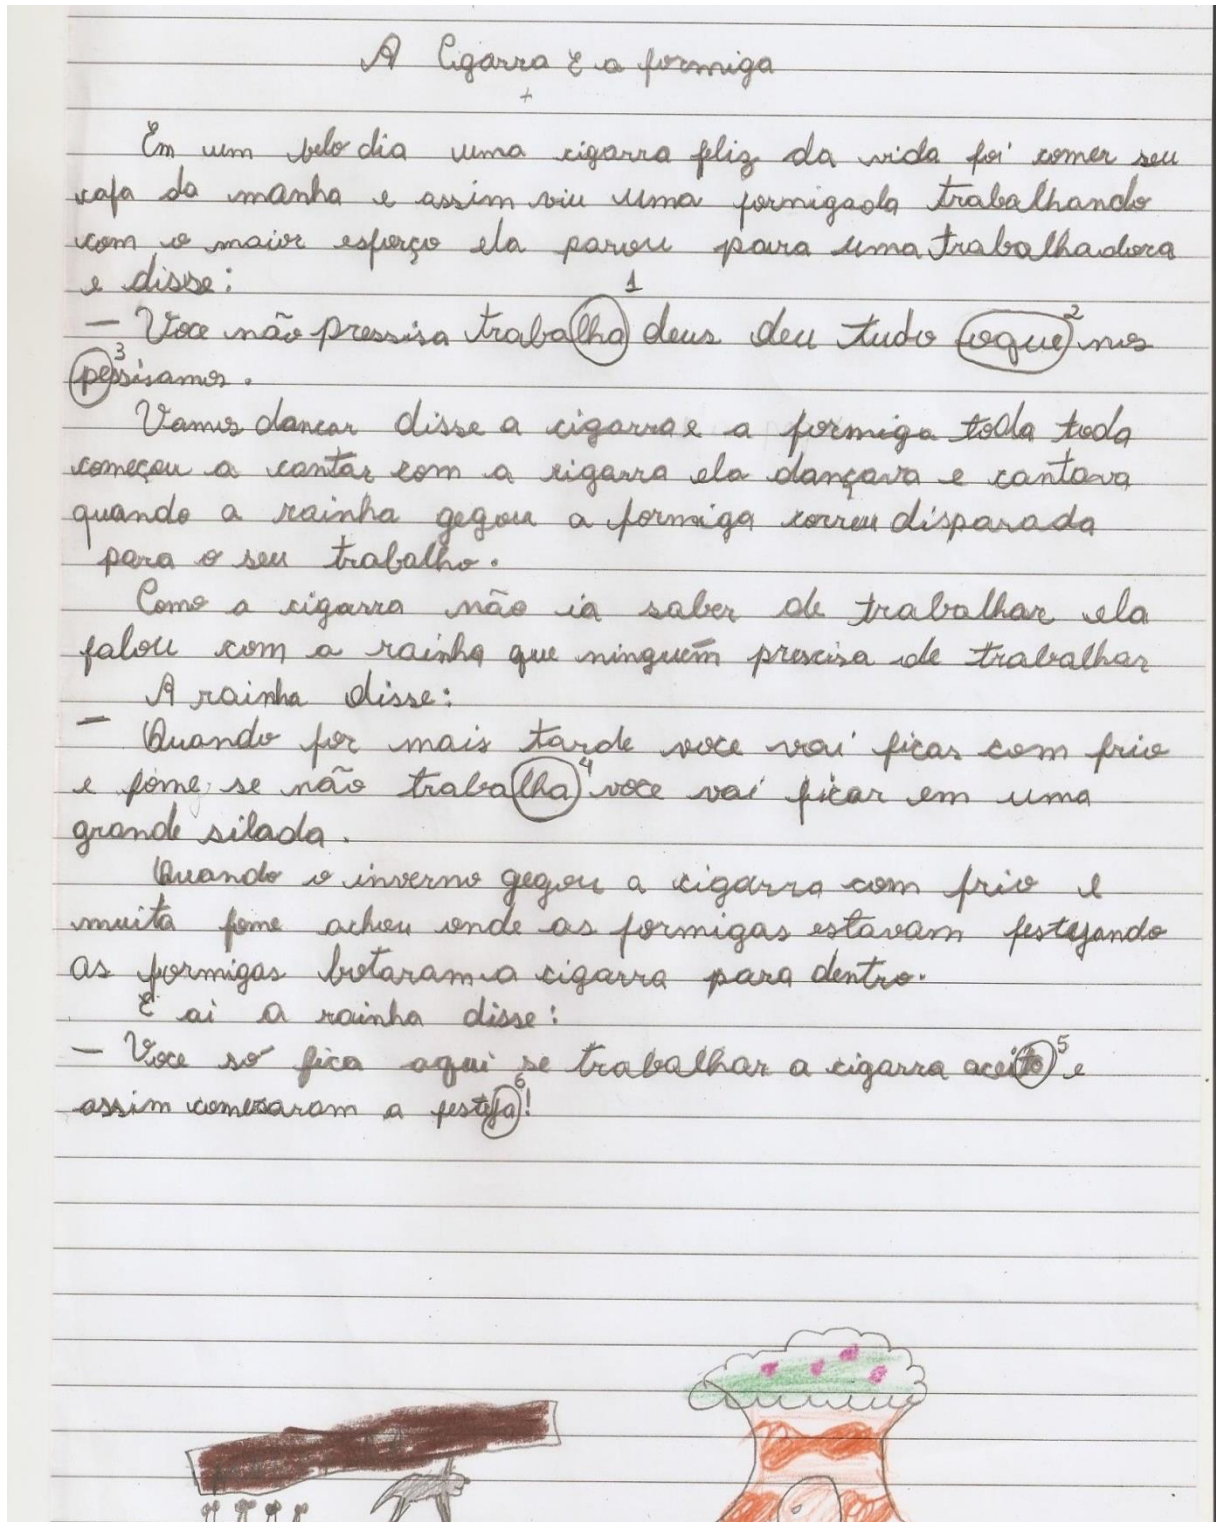 A Cigarra E a formiga
Em um belo dia uma cigarra feliz da vida foi comer seu
cafa da manha e assim viu uma formigada trabalhando
com o maior esforço ela parou para uma trabalhadora
e disse:
1
— Voce não pressisa trabalha deus deu tudo oque 2 nos
3
pessisamos.
Vamos dancar disse a cigarra e a formiga toda toda
começou a cantar com a cigarra ela dançava e cantava
quando a rainha gegou a formiga correu disparada
para o seu trabalho.
Como a cigarra não ia saber de trabalhar ela
falou com a rainha que ninguém precisa de trabalhar
A rainha disse:
— Quando for mais tarde voce vai ficas com frio
e fome, se não trabalha 4 voce vai ficar em uma
grande silada.
Quando o inverno gegou a cigarra com frio e
muita fome achou onde as formigas estavam festejando
as formigas botaram a cigarra para dentro.
E ai a rainha disse:
— Voce só fica aqui se trabalhar a cigarra aceito 5 e
assim comesaram a festeja 6!